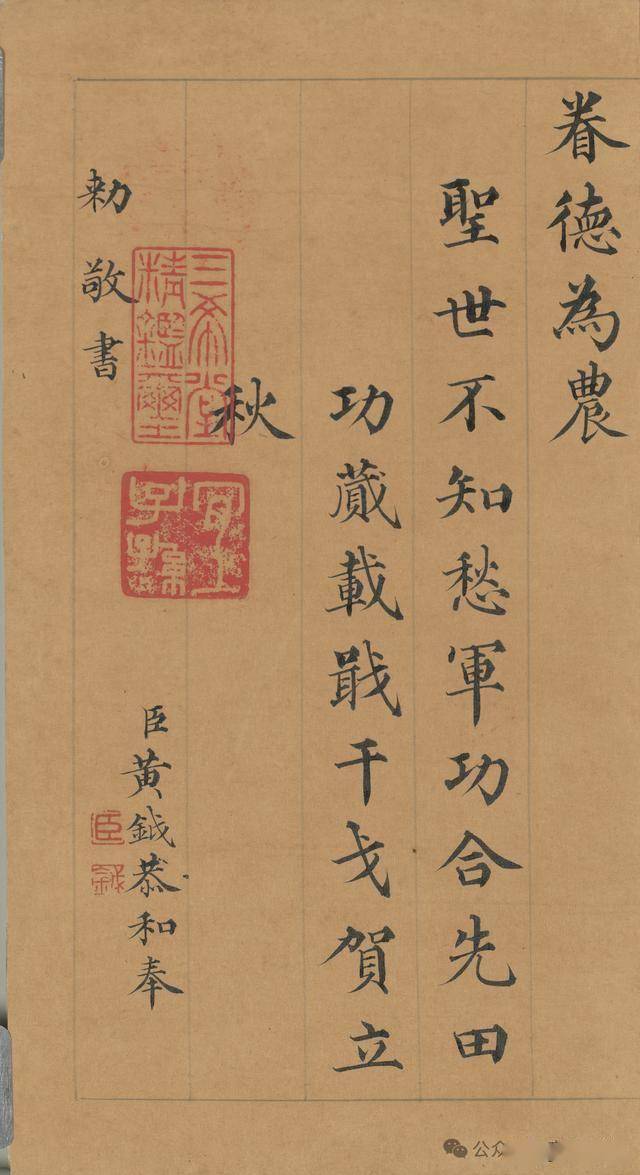 眷德為農
聖世不知愁軍功合先田
功蕆載戢干戈賀立
秋
三希堂精鑑璽
宜子孫
臣黃鉞恭和奉
臣鉞
勅敬書